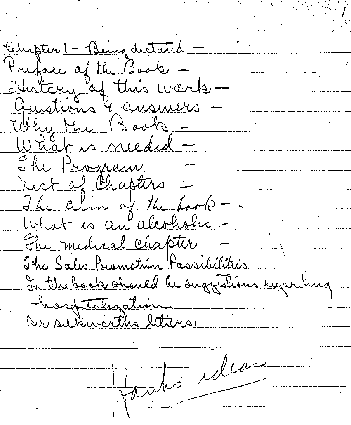 Chapter 1 - Being dictated -
Preface of the Book -
History of this work -
Questions & answers -
Why the Book -
What is needed -
The Program -
List of Chapters -
The aim of the book -
What is an alcoholic -
The medical chapter -
The Sales Promotion Possibilities
In the book should be suggestions regarding
Dr silkworths letters.
Hanks ideas